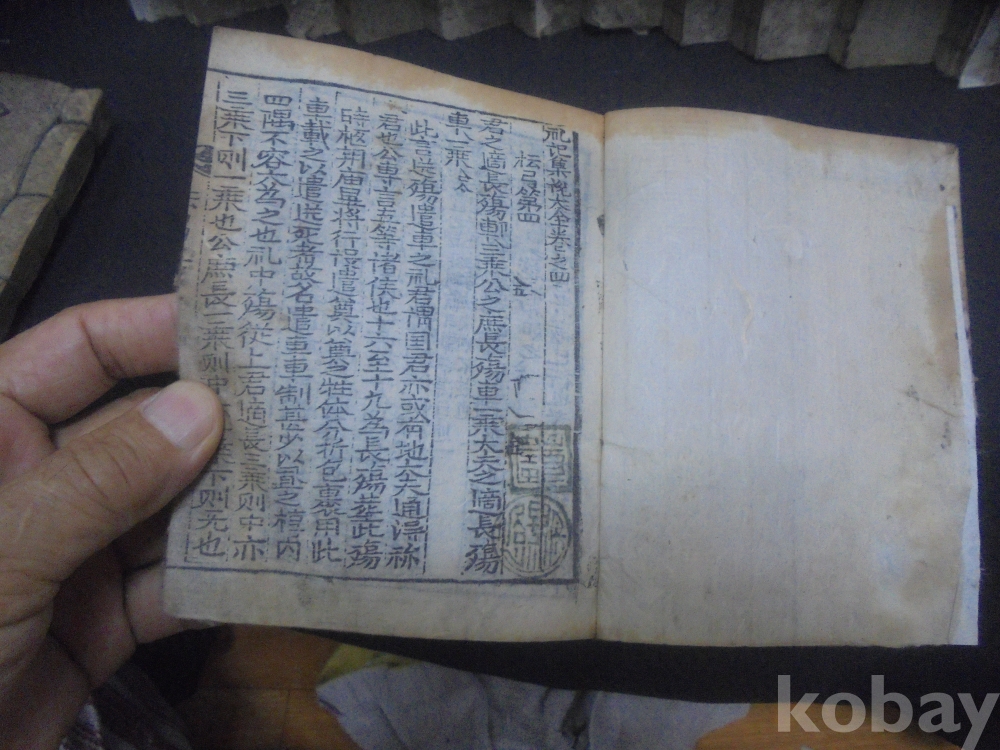 礼记集說大全卷之四
檀弓第四
君之適長殤車三乘公之庶長殤車一乘大夫之適長殤
車一乘
此言送殤遣車之礼君谓国君亦或有地大夫通得称
君也公專言五等诸侯也十六至十九為長殤葬此殤
時柩朝庙畢將行設遣奠以奠之牲体分折包裹用此
車載之以遣送死者故名遣車車制甚少以置之椁内
四隅不容大為之也礼中殤從上君適長三乘則中亦
三乘下則一乘也公庶長一乘則中亦一乘下則无也
kobay